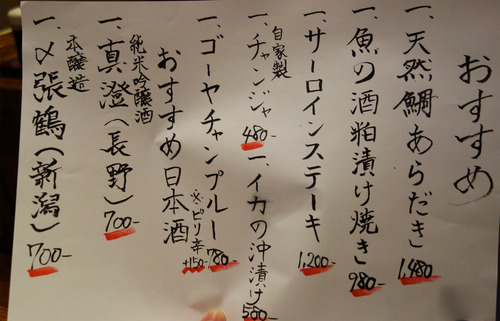 おすすめ
一、天然鯛あらだき 1,480
一、魚の酒粕漬け焼き 980-
一、サーロインステーキ 1,200-
一、自家製チャンジャ 480-
一、イカの沖漬け 580-
一、ゴーヤチャンプルー 780-
※ピリ辛 +150-
おすすめ日本酒
純米吟醸酒
一、真澄(長野) 700-
本醸造
一、〆張鶴(新潟) 700-